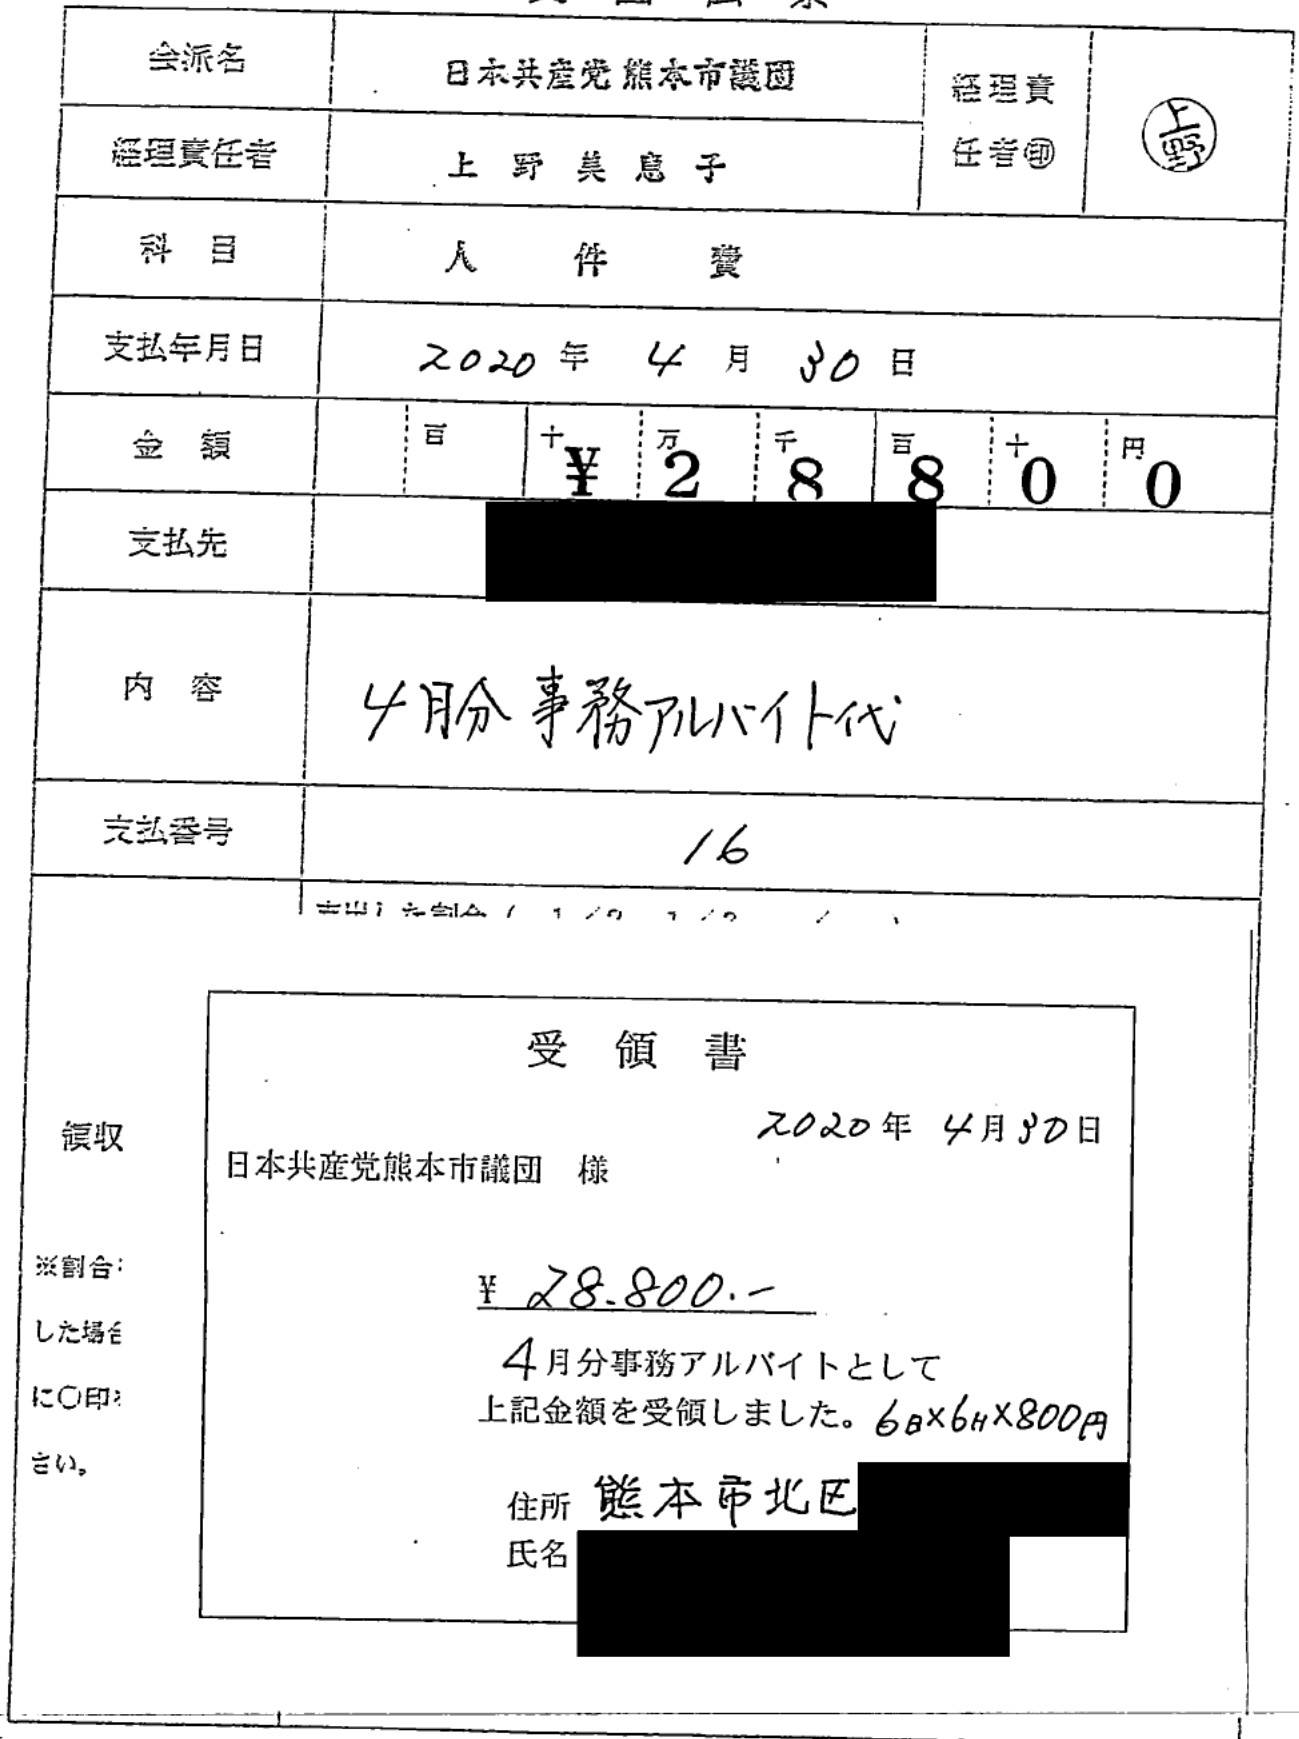 会派名 日本共産党熊本市議団 経理責任者㊞ 上野
経理責任者 上野美恵子
科目 人件費
支払年月日 2020年4月30日
金額 百 十 万 千 百 十 円 ¥28800
支払先
内容 4月分事務アルバイト代
支払番号 16
受領書
2020年 4月30日
領収
日本共産党熊本市議団 様
※割合
¥ 28.800.-
した場合
4月分事務アルバイトとして
に〇印
上記金額を受領しました。6日×6H×800円
さい。
住所 熊本市北区
氏名